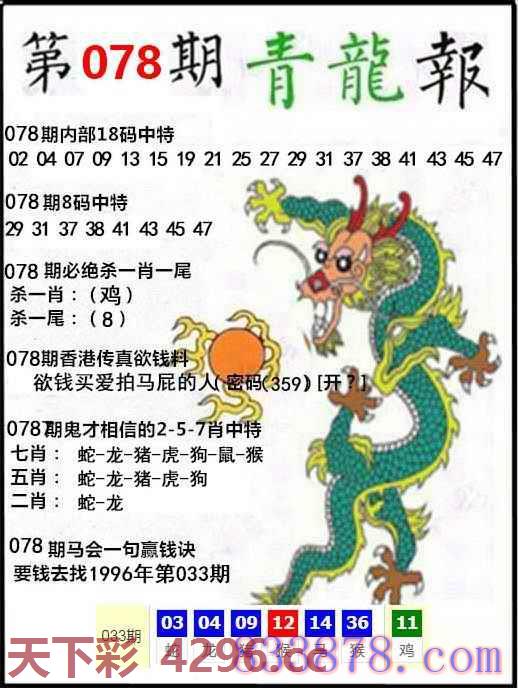 第078期 青龍報
078期内部18码中特
02 04 07 09 13 15 19 21 25 27 29 31 37 38 41 43 45 47
078期8码中特
29 31 37 38 41 43 45 47
078期必绝杀一肖一尾
杀一肖：（鸡）
杀一尾：（8）
078期香港传真欲钱料
欲钱买爱拍马屁的人(密码(359)[开？]
078期鬼才相信的2-5-7肖中特
七肖： 蛇-龙-猪-虎-狗-鼠-猴
五肖： 蛇-龙-猪-虎-狗
二肖： 蛇-龙
078期马会一句赢钱诀
要钱去找1996年第033期
033期 03 04 09 12 14 36 11
蛇 龙 猪 猴 猴 鸡
天下彩 4296.cc